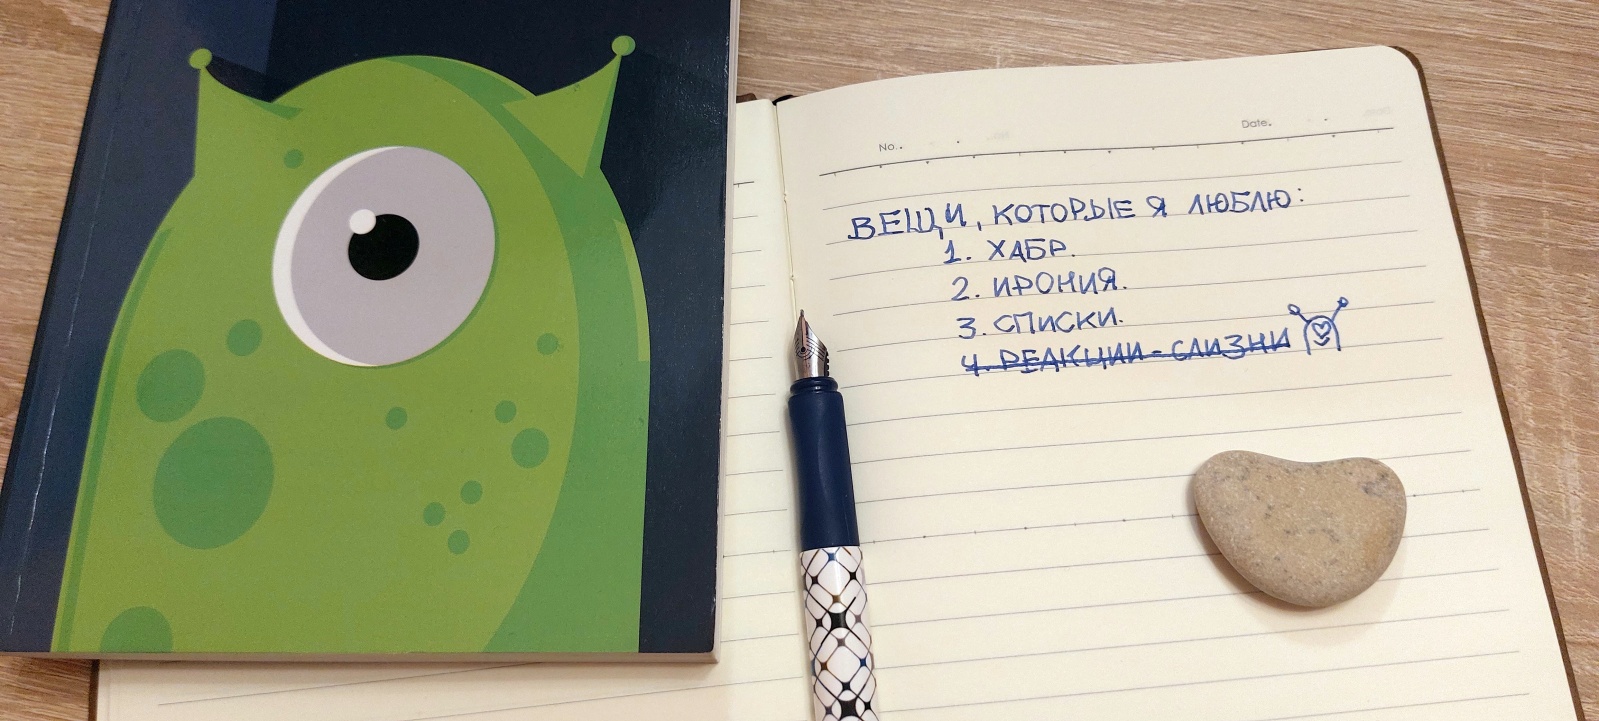 No.
Date.
ВЕЩИ, КОТОРЫЕ Я ЛЮБЛЮ:
1. ХАБР.
2. ИРОНИЯ.
3. СПИСКИ.
4. РЕАКЦИИ-СЛИЗНИ